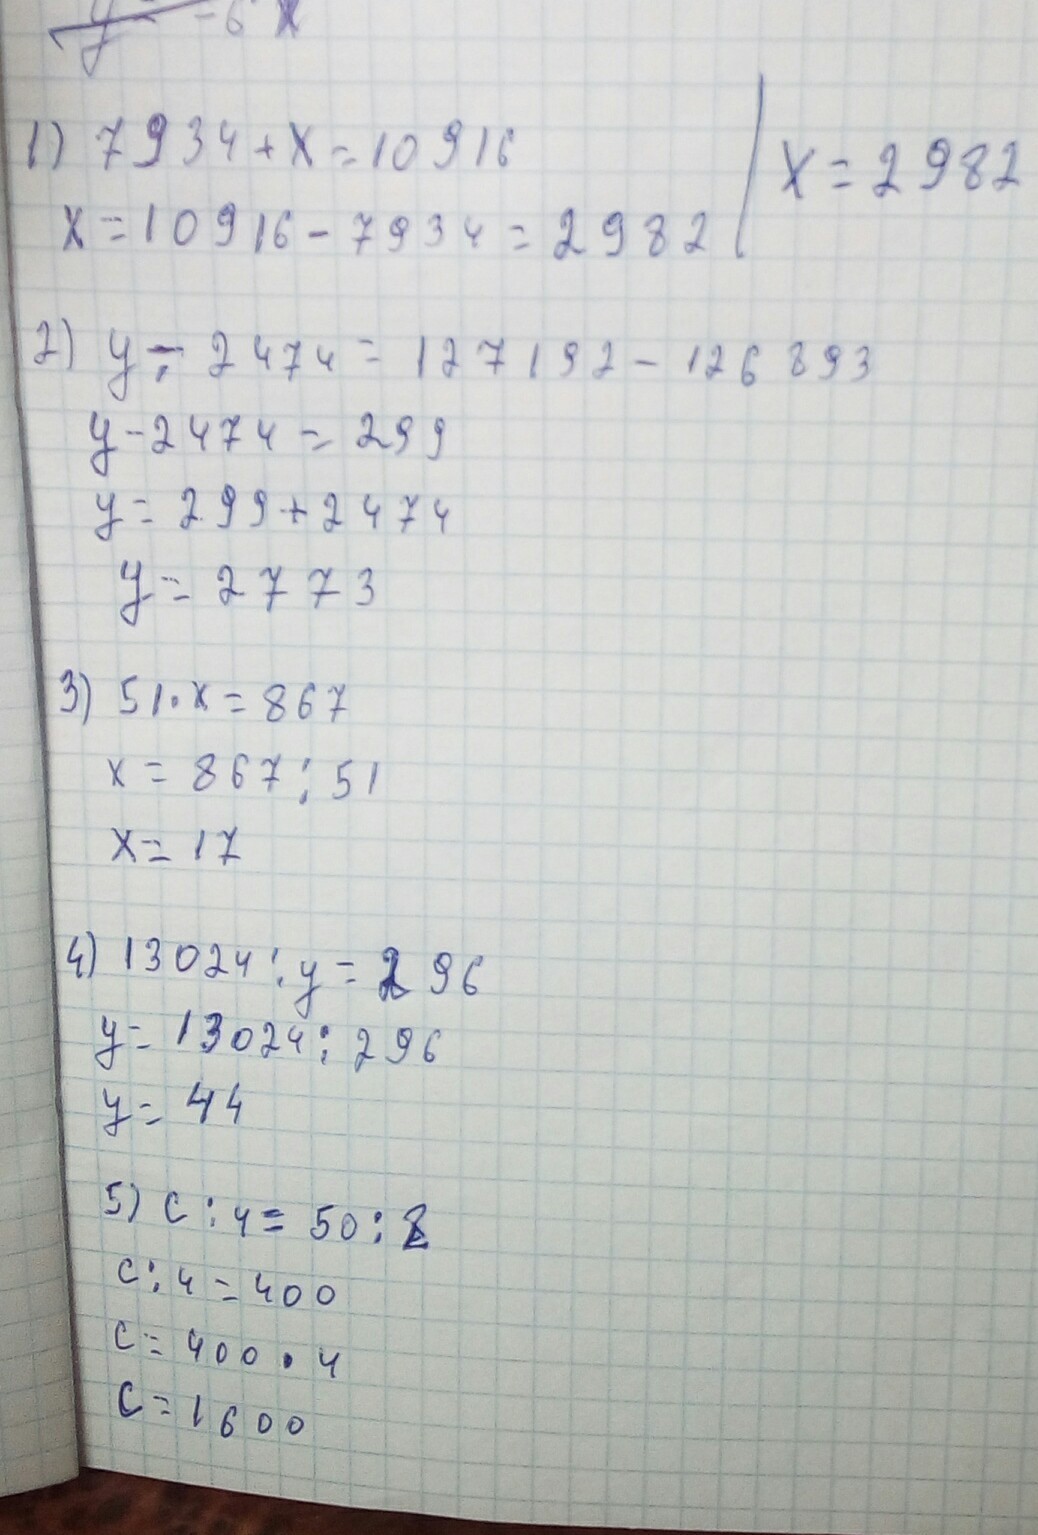 1) 7934+x=10916
x=10916-7934=2982 | x=2982
2) y-2474=127192-126893
y-2474=299
y=299+2474
y=2773
3) 51·x=867
x=867:51
x=17
4) 13024:y=296
y=13024:296
y=44
5) c:4=50:
c:4=400
c=400·4
c=1600